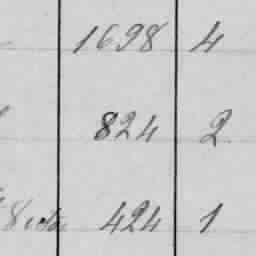 1698 4
824 2
8 424 1